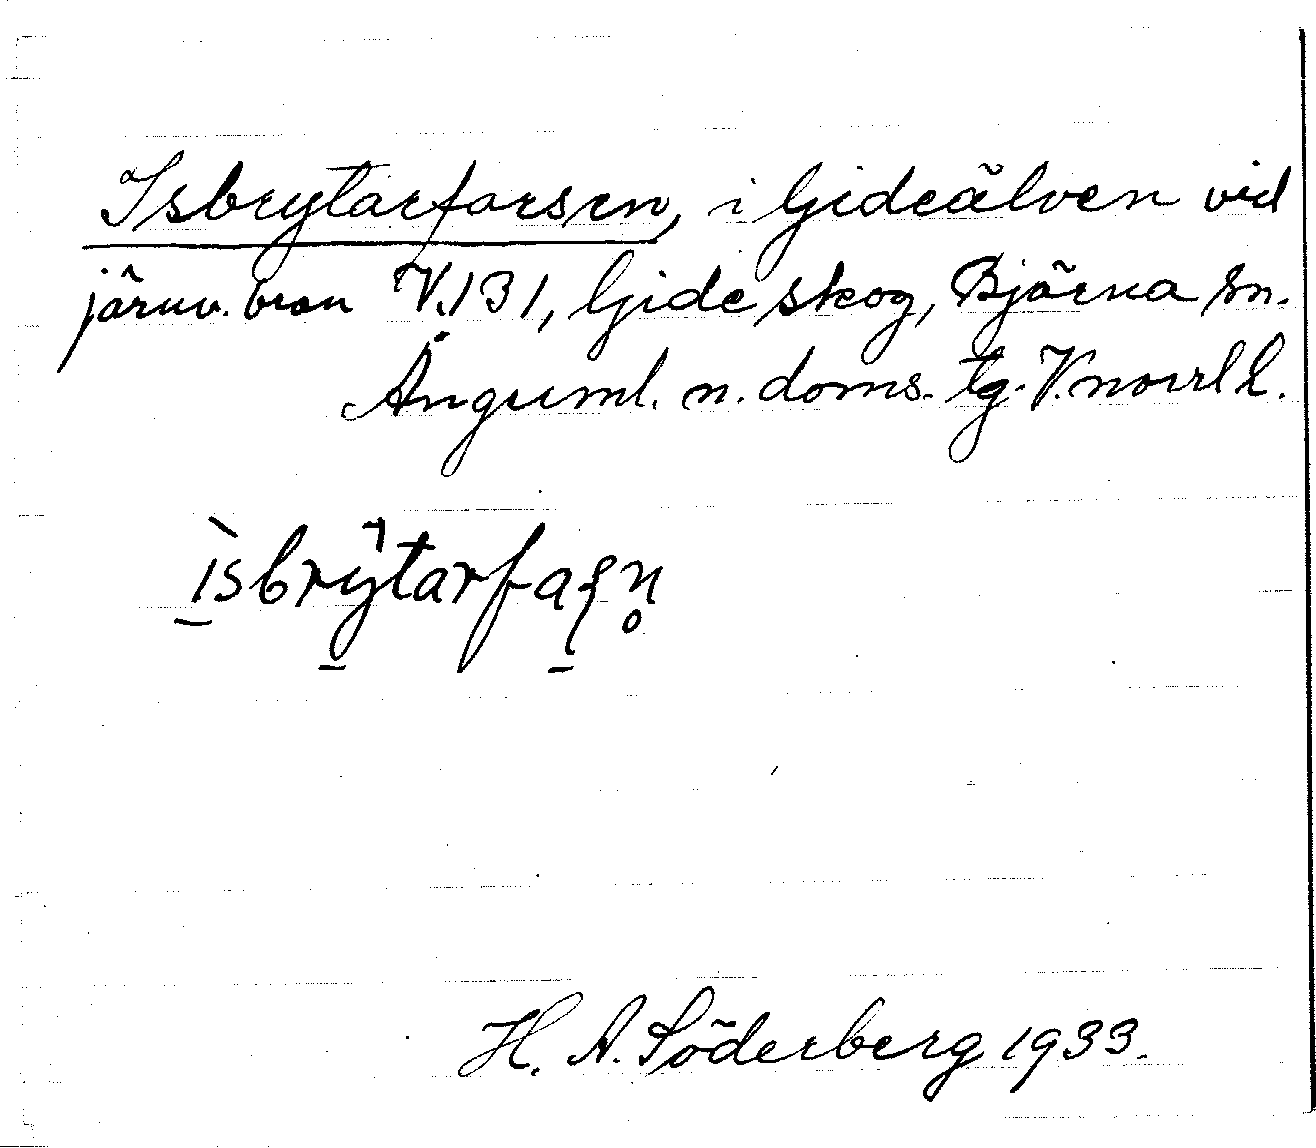 Isbrytarforsen, i Gideälven vid
järnv. bron V.131, Gide skog, Björna sn.
Ångerml. n. doms. tg. V.norrl l.
ìsbrỳtarfaʂn̥
H. A. Söderberg 1933.